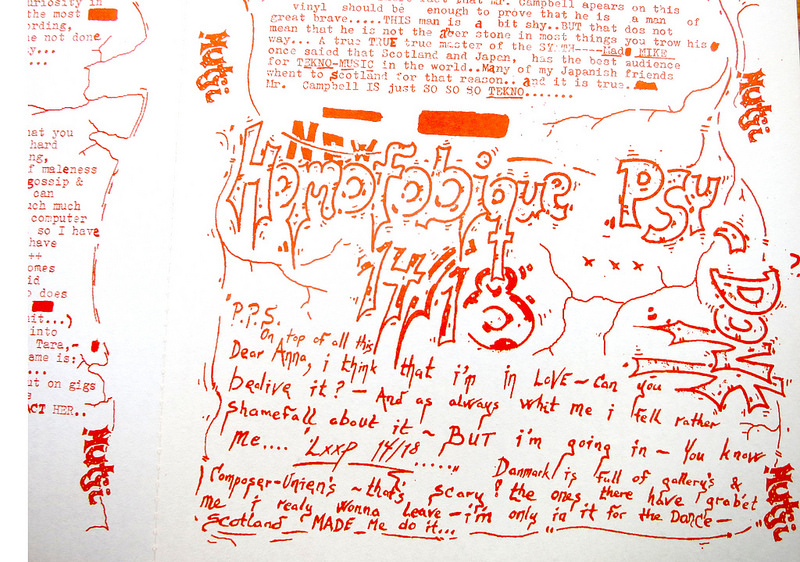 uriosity in
the most
ording,
e not done
y...
...
hat you
hard
ng,
f maleness
gossip &
can
uch much
computer
so I have
have
++
omes
id
does
it...)
into
Tara,-
ame is:
...
ut on gigs
ACT HER..
Hutgi
that Mr. Campbell apears on this
vinyl should be enough to prove that he is a man of
great brave.....THIS man is a bit shy..BUT that dos not
mean that he is not the aver stone in most things you trow his
way... A true TRUE true master of the SYNTH----Lady MIKE
once saied that Scotland and Japen, has the best audience
for TEKNO-MUSIC in the world..Many of my Japanish friends
whent to Scotland for that reason.. and it is true..
Mr. Campbell IS just SO SO SO TEKNO.......
Hutgi
Hutgi
NEW
Homofobique PSY
14/18
x x x x
P.P.S.
On top of all this
Dear Anna, i think that i'm in LoVE - Can you
belive it? - And as always whit me i fell rather
shamefall about it ~ BUT i'm going in - You know
Me.... 'LxxP 14/18 ......"
Danmark is full of gallery's &
Composer-Unien's ~ that's scary! the ones there have grabet
me i realy wonna Leave - i'm only in it for the DaNCe -
Scotland MADE Me do it...
Hutgi